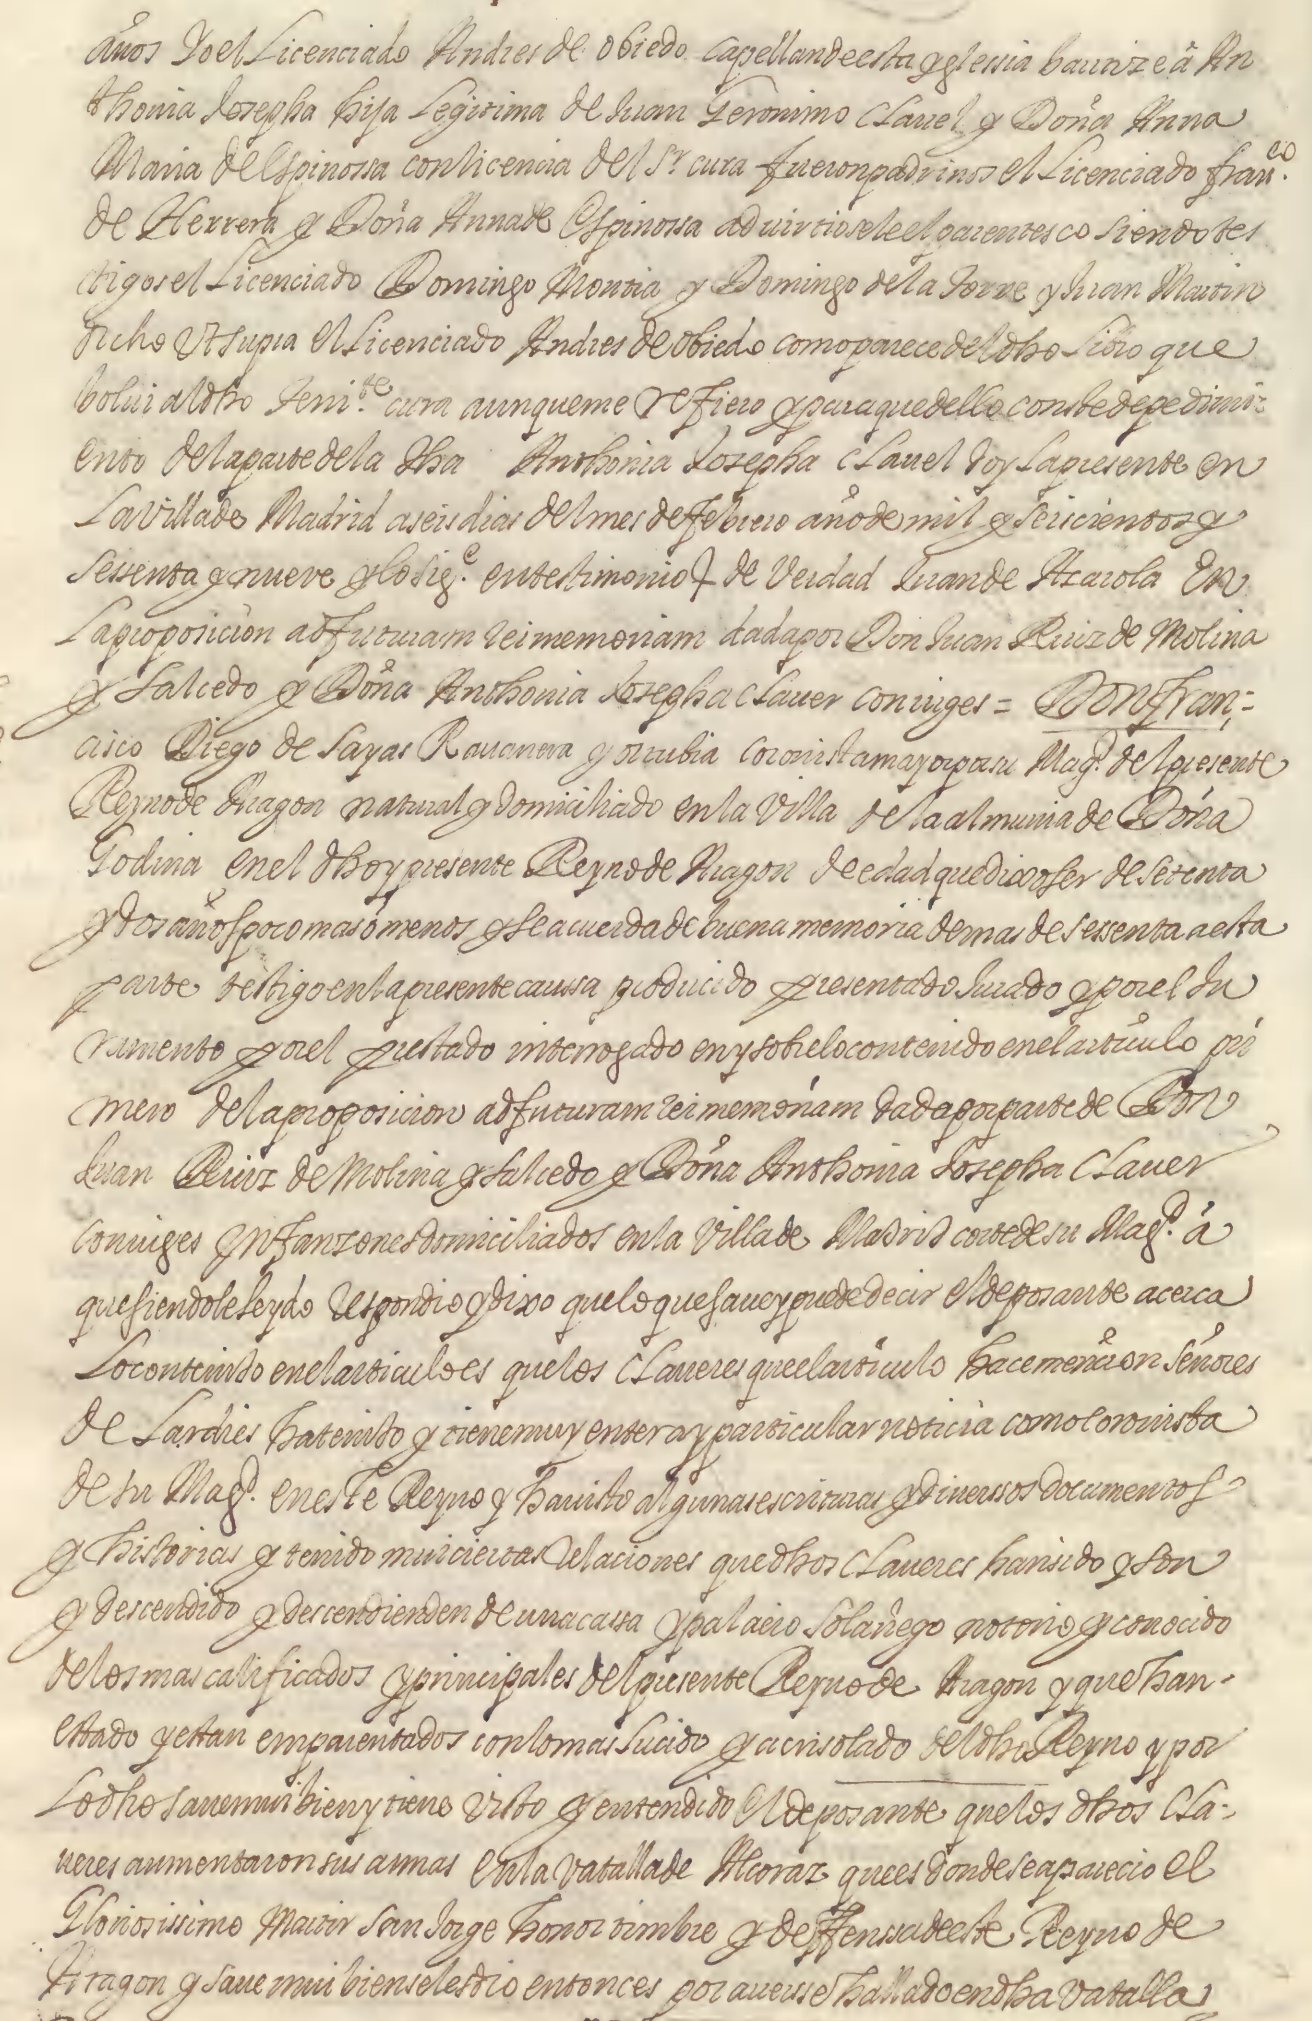 años Yo el Licenciado Andres de obiedo capellan de esta yglessia baurize â An
thonia Josepha hija Legitima de Juan Geronimo Clauel y Doña Anna
Maria de Espinossa con licencia del Sr cura fueron padrinos el Licenciado fran.co
de Herrera y Doña Anna de Espinossa aduirtiosele el parentesco siendo tes
tigos el Licenciado Domingo Montia y Domingo de la Torre y Juan Martin
dicho Vt supra el Licenciado Andres de obiedo como parece del dho Libro que
bolui al dho Teni.te cura aunque me refiero y para que dello conste de pedimi-
ento de la parte de la dha Anthonia Josepha Clauel doy la presente en
La Villa de Madrid a seis dias del mes de febrero año de mil y seiscientos y
sessenta y nueve y lo sig.e en testimonio de Verdad Juan de Azarola En
La proposicion ad futuram rei memoriam dada por Don Juan Ruiz de Molina
y Salcedo y Doña Anthonia Josepha Clauer coniuges = Don fran-
cisco Diego de Sayas Rauanera y ortubia coronista mayor por su Mag.d del presente
Reyno de Aragon natural y domiciliado en la Villa de la almunia de Doña
Godina en el dho y presente Reyno de Aragon de edad que dixo ser de setenta
y dos años poco mas ò menos y se acuerda de buena memoria de mas de sessenta a esta
parte testigo en la presente caussa producido presentado Jurado y por el Ju
ramento por el prestado interrogado en y sobre lo contenido en el articulo pri
mero de la proposicion ad futuram rei memoriam dada por parte de Don
Juan Ruiz de Molina y Salcedo y Doña Anthonia Josepha Clauer
coniuges ynfanzones domiciliados en la Villa de Madrid corte de su Mag.d à
que siendole leydo respondio y dixo que lo que saue y puede decir el deposante acerca
Lo contenido en el articulo es que los Claueres que el articulo hace mencion señores
de Lardies ha tenido y tiene muy entera y particular noticia como coronista
de su Mag.d en este Reyno y ha visto algunas escrituras y diuersos documentos
y historias y tenido mui ciertas relaciones que dhos Claueres han sido y son
y descendido y descendienden de una cassa y palacio solariego notorio y conocido
de los mas calificados y principales del presente Reyno de Aragon y que han-
estado y estan emparentados con lo mas Lucido y acrisolado del dho Reyno y por
Lo dho saue mui bien y tiene Visto y entendido el deposante que los dhos Cla-
ueres aumentaron sus armas en la vatalla de Alcoraz que es donde se aparecio el
Gloriosissimo Martir San Jorge honor timbre y deffenssa de este Reyno de
Aragon y saue mui bien se les dio entonces por auersse hallado en dha vatalla